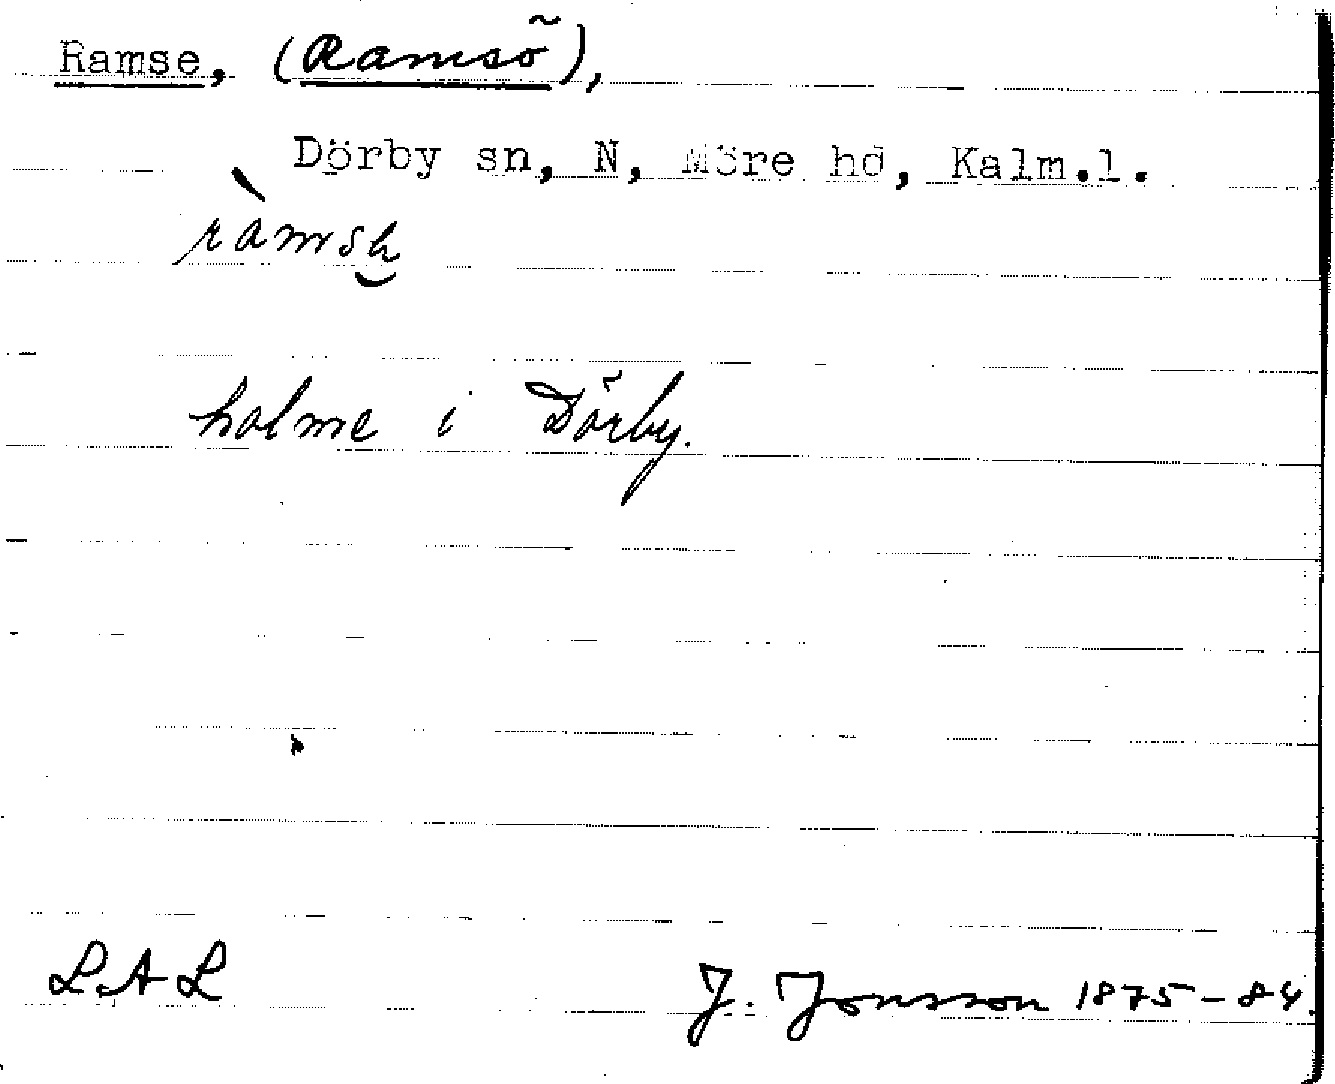 Ramse, (Ramsö),
Dörby sn, N, Möre hd, Kalm.l.
holme i Dörby.
LAL
J. Jonsson 1875-84.